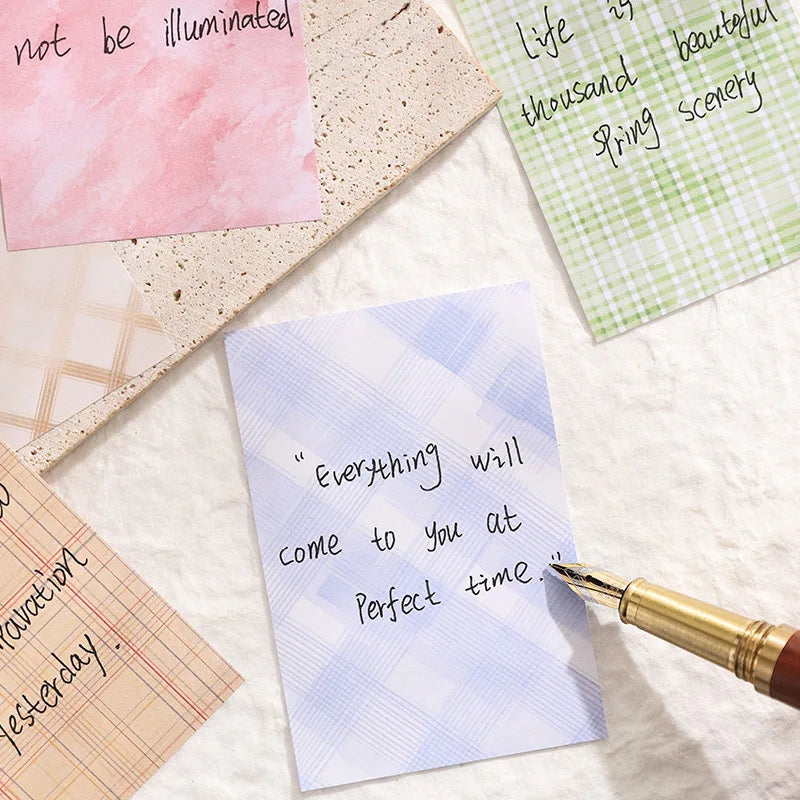 not be illuminated
Life is
thousand beautoful
spring scenery
"Everything will
come to you at
Perfect time."
yesterday.